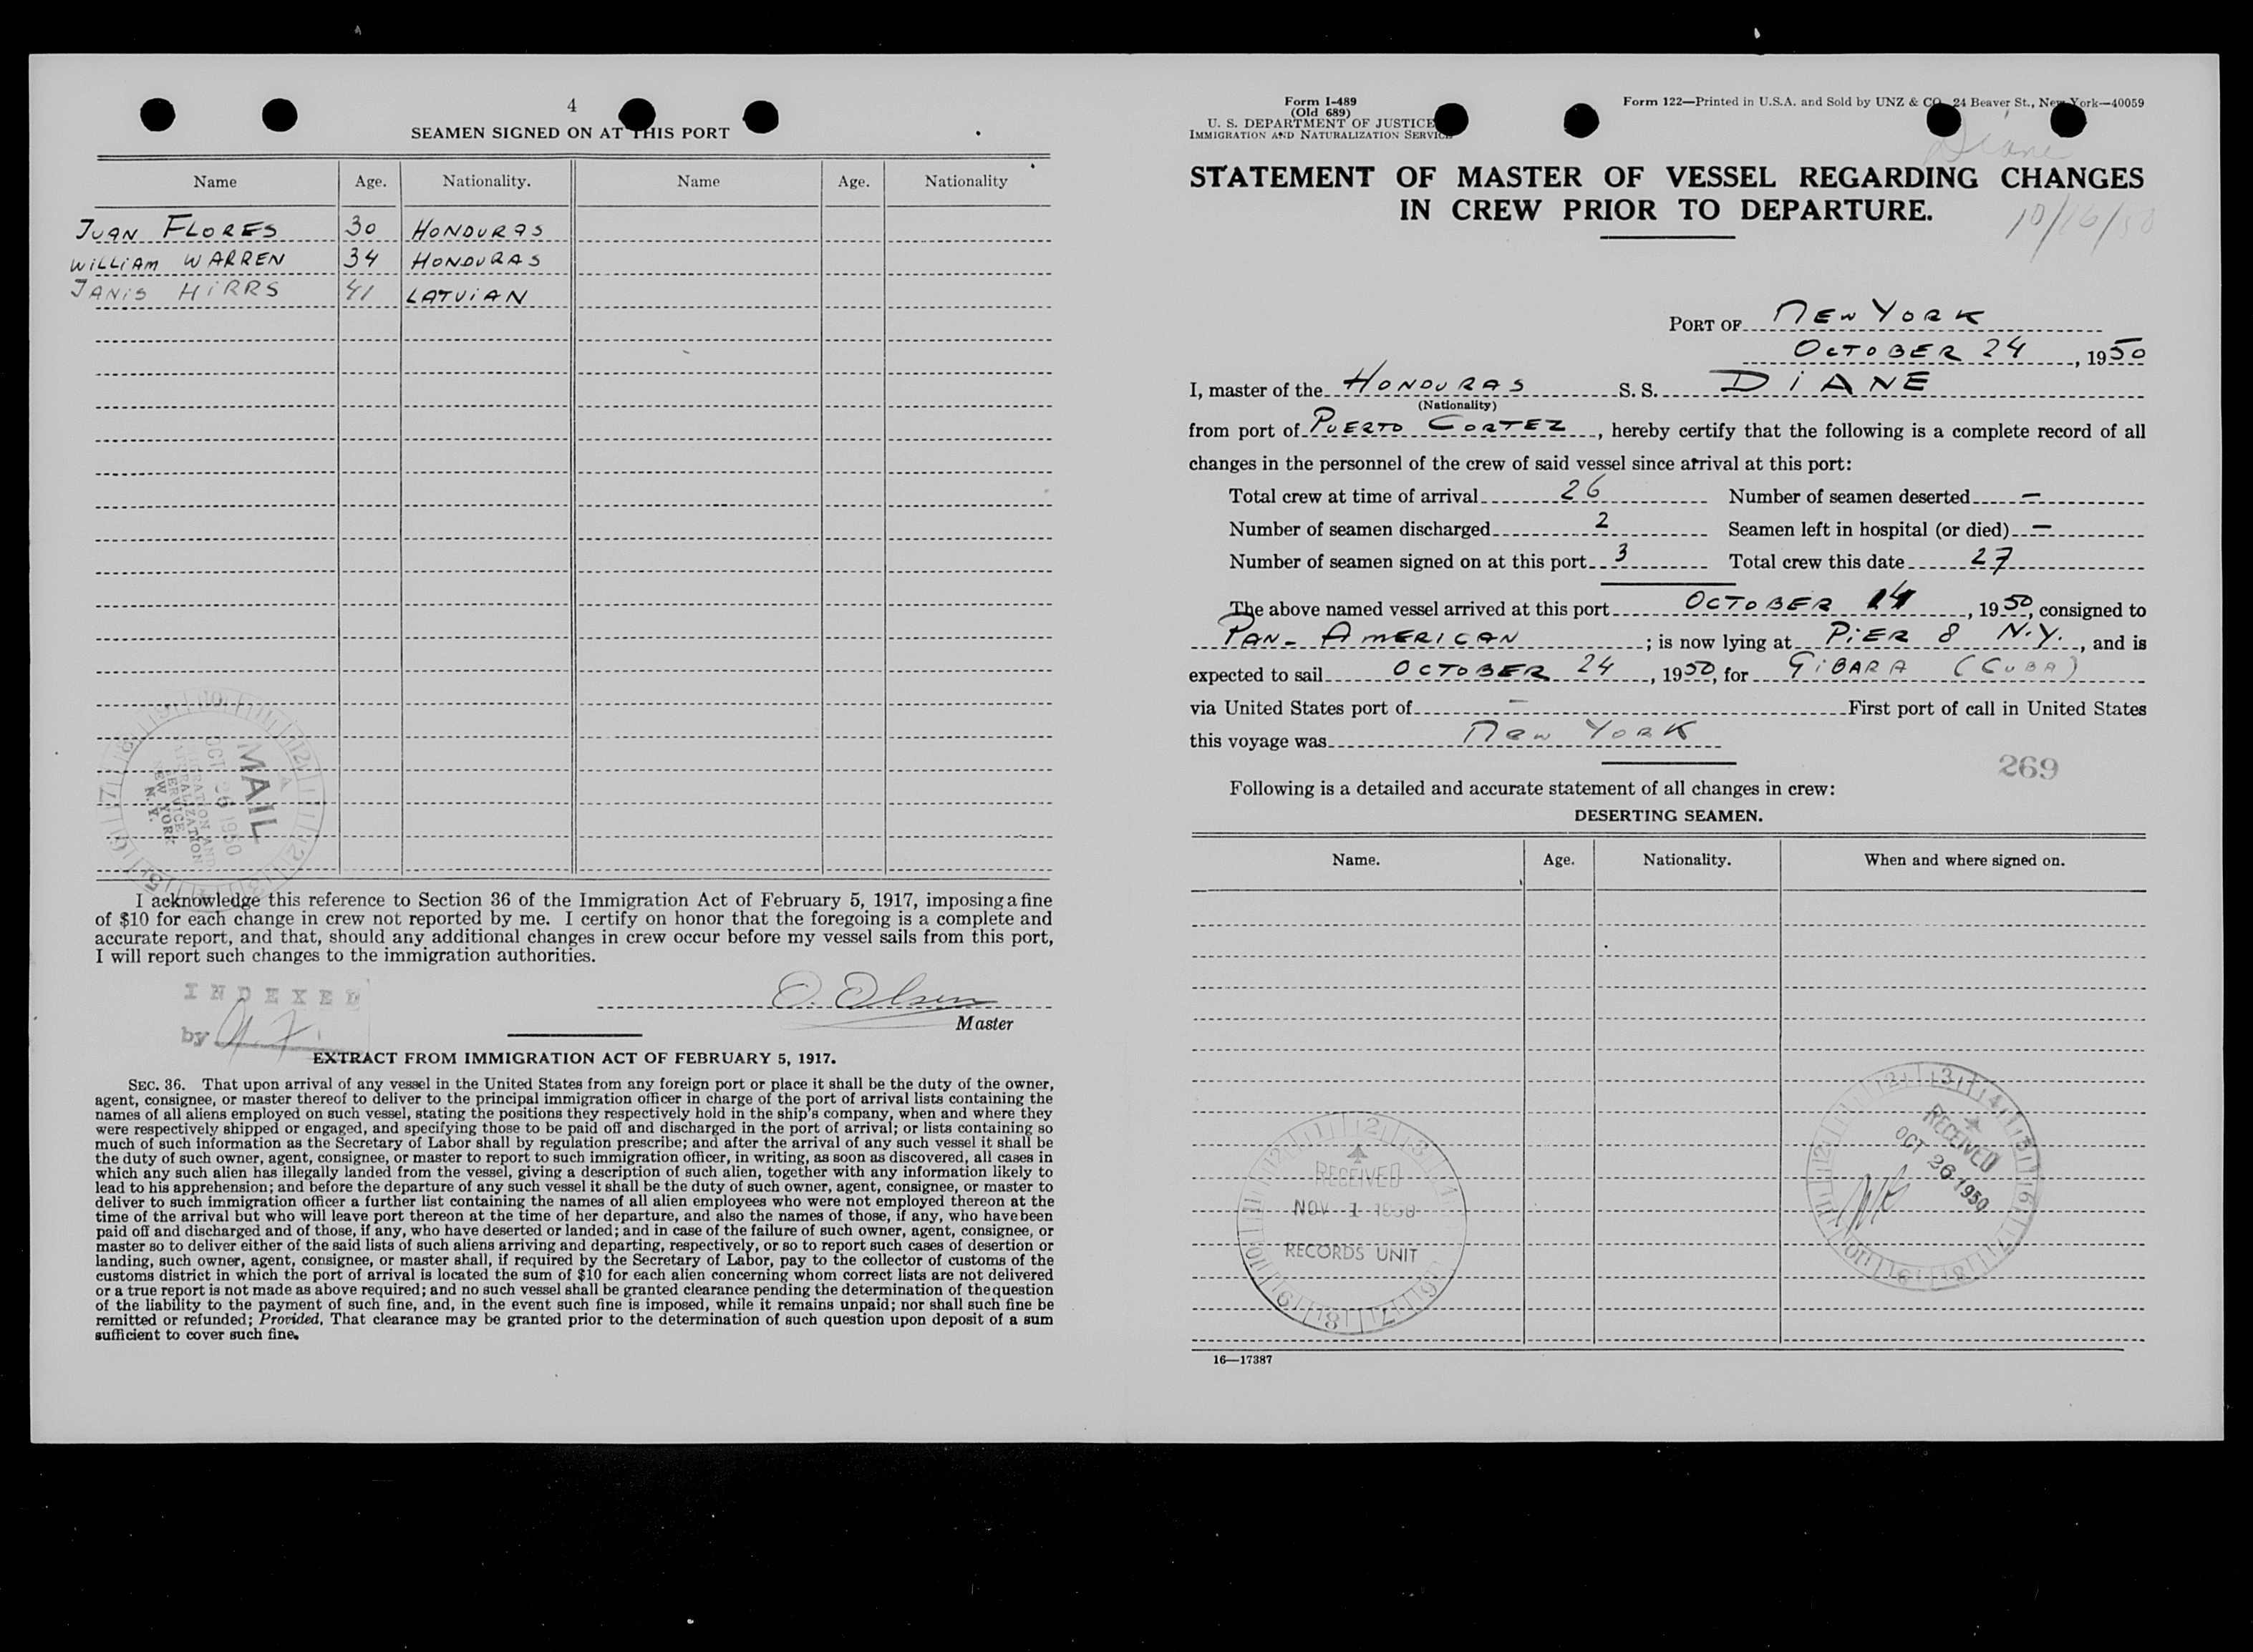 4
SEAMEN SIGNED ON AT THIS PORT
Name Age. Nationality. Name Age. Nationality
JUAN FLORES 30 HONDURAS
WILLIAM WARREN 34 HONDURAS
JANIS HIRRS 41 LATVIAN
MAIL
OCT 26 1950
IMMIGRATION AND
NATURALIZATION
SERVICE
NEW YORK
N.Y.
I acknowledge this reference to Section 36 of the Immigration Act of February 5, 1917, imposing a fine
of $10 for each change in crew not reported by me. I certify on honor that the foregoing is a complete and
accurate report, and that, should any additional changes in crew occur before my vessel sails from this port,
I will report such changes to the immigration authorities.
INDEXED
by
O. Olsen
Master
EXTRACT FROM IMMIGRATION ACT OF FEBRUARY 5, 1917.
SEC. 36. That upon arrival of any vessel in the United States from any foreign port or place it shall be the duty of the owner,
agent, consignee, or master thereof to deliver to the principal immigration officer in charge of the port of arrival lists containing the
names of all aliens employed on such vessel, stating the positions they respectively hold in the ship's company, when and where they
were respectively shipped or engaged, and specifying those to be paid off and discharged in the port of arrival; or lists containing so
much of such information as the Secretary of Labor shall by regulation prescribe; and after the arrival of any such vessel it shall be
the duty of such owner, agent, consignee, or master to report to such immigration officer, in writing, as soon as discovered, all cases in
which any such alien has illegally landed from the vessel, giving a description of such alien, together with any information likely to
lead to his apprehension; and before the departure of any such vessel it shall be the duty of such owner, agent, consignee, or master to
deliver to such immigration officer a further list containing the names of all alien employees who were not employed thereon at the
time of the arrival but who will leave port thereon at the time of her departure, and also the names of those, if any, who have been
paid off and discharged and of those, if any, who have deserted or landed; and in case of the failure of such owner, agent, consignee, or
master so to deliver either of the said lists of such aliens arriving and departing, respectively, or so to report such cases of desertion or
landing, such owner, agent, consignee, or master shall, if required by the Secretary of Labor, pay to the collector of customs of the
customs district in which the port of arrival is located the sum of $10 for each alien concerning whom correct lists are not delivered
or a true report is not made as above required; and no such vessel shall be granted clearance pending the determination of the question
of the liability to the payment of such fine, and, in the event such fine is imposed, while it remains unpaid; nor shall such fine be
remitted or refunded; Provided, That clearance may be granted prior to the determination of such question upon deposit of a sum
sufficient to cover such fine.
Form I-489
(Old 689)
U. S. DEPARTMENT OF JUSTICE
IMMIGRATION AND NATURALIZATION SERVICE
Form 122—Printed in U.S.A. and Sold by UNZ & CO. 24 Beaver St., New York—40059
Diane
STATEMENT OF MASTER OF VESSEL REGARDING CHANGES
IN CREW PRIOR TO DEPARTURE.
10/16/50
PORT OF NEW YORK
OCTOBER 24, 1950
I, master of the HONDURAS S. S. DIANE
(Nationality)
from port of PUERTO CORTEZ, hereby certify that the following is a complete record of all
changes in the personnel of the crew of said vessel since arrival at this port:
Total crew at time of arrival 26 Number of seamen deserted —
Number of seamen discharged 2 Seamen left in hospital (or died) —
Number of seamen signed on at this port 3 Total crew this date 27
The above named vessel arrived at this port OCTOBER 14, 1950, consigned to
PAN-AMERICAN; is now lying at PIER 8 N.Y., and is
expected to sail OCTOBER 24, 1950, for GIBARA (CUBA)
via United States port of — First port of call in United States
this voyage was NEW YORK
269
Following is a detailed and accurate statement of all changes in crew:
DESERTING SEAMEN.
Name. Age. Nationality. When and where signed on.
RECEIVED
OCT 26 1950
RECEIVED
NOV 1 1950
RECORDS UNIT
16—17387